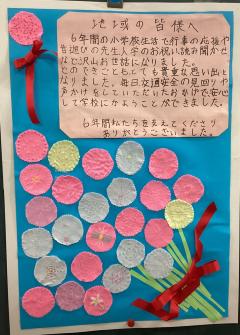 地域の皆様へ
6年間の小学校生活で行事の応援や
昔遊びの先生、入学のお祝い、読み聞かせ
など沢山お世話になりました。
そのできごとはとても貴重な思い出と
なりました。毎日、交通安全の見回りや
声かけをしていただいたおかげで、安心
して学校にかようことができました。
6年間私たちを支えてくださり
ありがとうございました。